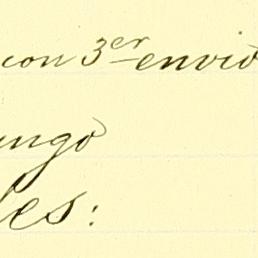 con 3er envio
ungo
les: